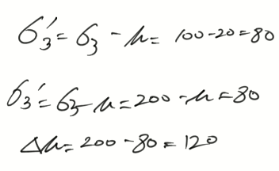 σ₃′ = σ₃ − u = 100 − 20 = 80
σ₃′ = σ₃ − u = 200 − u = 80
Δu = 200 − 80 = 120